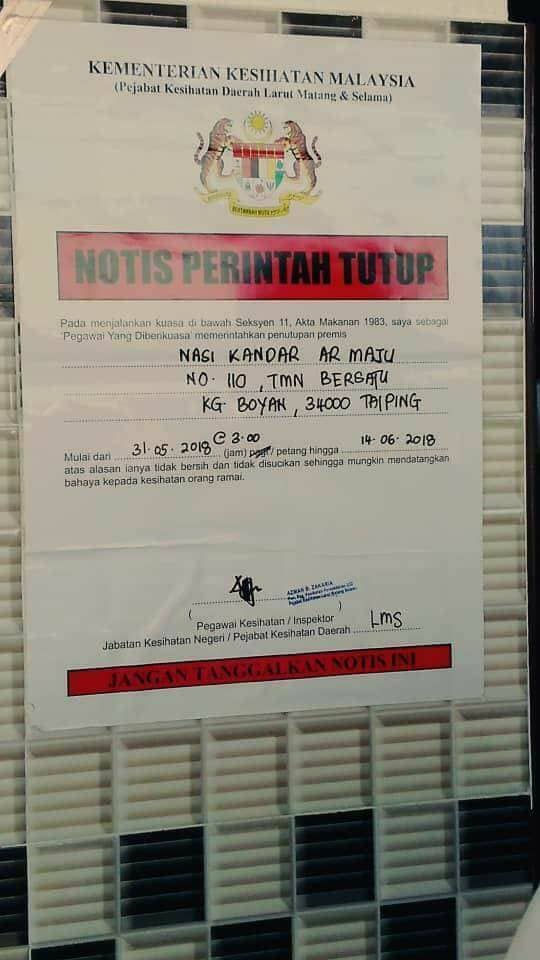 KEMENTERIAN KESIHATAN MALAYSIA
(Pejabat Kesihatan Daerah Larut Matang & Selama)
NOTIS PERINTAH TUTUP
Pada menjalankan kuasa di bawah Seksyen 11, Akta Makanan 1983, saya sebagai
'Pegawai Yang Diberikuasa' memerintahkan penutupan premis
NASI KANDAR AR MAJU
NO. 110, TMN BERSATU
KG. BOYAN, 34000 TAIPING
Mulai dari 31.05.2018 @ 3.00 (jam) pagi / petang hingga 14.06.2018
atas alasan ianya tidak bersih dan tidak disucikan sehingga mungkin mendatangkan
bahaya kepada kesihatan orang ramai.
AZMAN B. ZAKARIA
( )
Pegawai Kesihatan / Inspektor
Jabatan Kesihatan Negeri / Pejabat Kesihatan Daerah LMS
JANGAN TANGGALKAN NOTIS INI